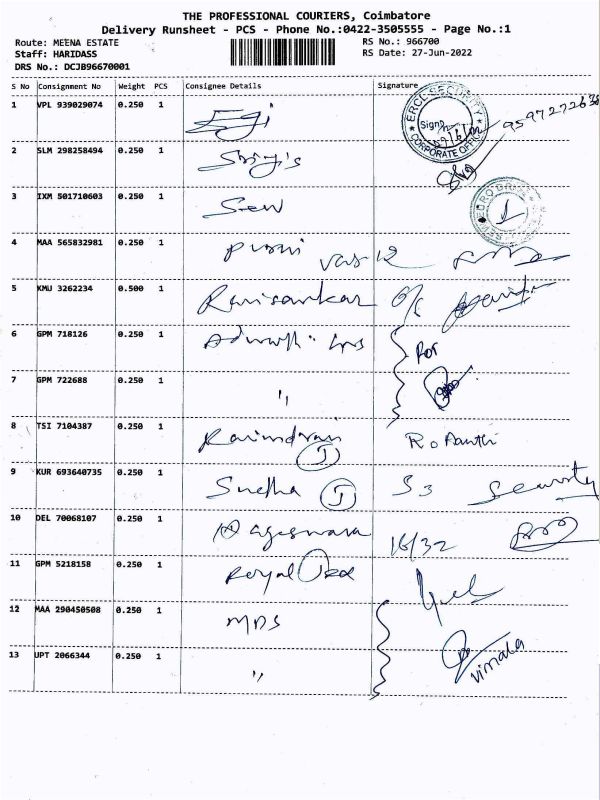 THE PROFESSIONAL COURIERS, Coimbatore
Delivery Runsheet - PCS - Phone No.:0422-3505555 - Page No.:1
Route: MEENA ESTATE RS No.: 966700
Staff: HARIDASS RS Date: 27-Jun-2022
DRS No.: DCJB96670001
S No Consignment No Weight PCS Consignee Details Signature
1 VPL 939029074 0.250 1
ERCL SECURITY
Sign
CORPORATE OFFICE
2 SLM 298258494 0.250 1
3 IXM 501710603 0.250 1
4 MAA 565832981 0.250 1
5 KMU 3262234 0.500 1 Ravisankar
6 GPM 718126 0.250 1 For
7 GPM 722688 0.250 1 "
8 TSI 7104387 0.250 1 Ravindran
9 KUR 693640735 0.250 1 Sudha S3 Security
10 DEL 70068107 0.250 1 Nageswara 16/32
11 GPM 5218158 0.250 1 Royal
12 MAA 290450508 0.250 1 MDS
vimala
13 UPT 2066344 0.250 1 "